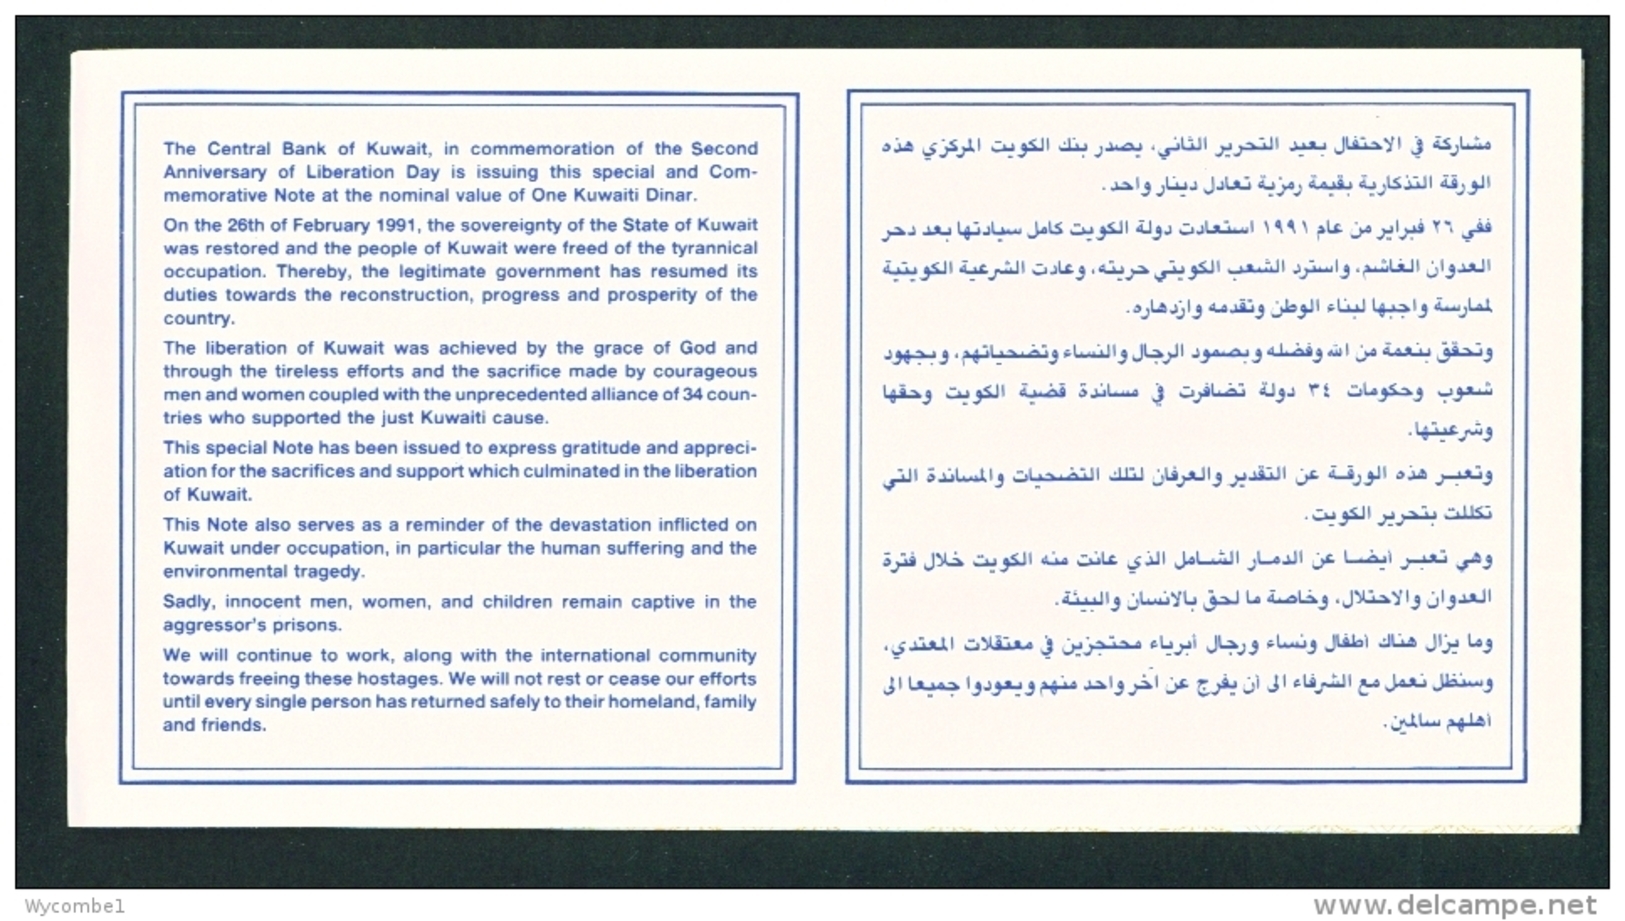 The Central Bank of Kuwait, in commemoration of the Second
Anniversary of Liberation Day is issuing this special and Com-
memorative Note at the nominal value of One Kuwaiti Dinar.
On the 26th of February 1991, the sovereignty of the State of Kuwait
was restored and the people of Kuwait were freed of the tyrannical
occupation. Thereby, the legitimate government has resumed its
duties towards the reconstruction, progress and prosperity of the
country.
The liberation of Kuwait was achieved by the grace of God and
through the tireless efforts and the sacrifice made by courageous
men and women coupled with the unprecedented alliance of 34 coun-
tries who supported the just Kuwaiti cause.
This special Note has been issued to express gratitude and appreci-
ation for the sacrifices and support which culminated in the liberation
of Kuwait.
This Note also serves as a reminder of the devastation inflicted on
Kuwait under occupation, in particular the human suffering and the
environmental tragedy.
Sadly, innocent men, women, and children remain captive in the
aggressor's prisons.
We will continue to work, along with the international community
towards freeing these hostages. We will not rest or cease our efforts
until every single person has returned safely to their homeland, family
and friends.
مشاركة في الاحتفال بعيد التحرير الثاني، يصدر بنك الكويت المركزي هذه
الورقة التذكارية بقيمة رمزية تعادل دينار واحد.
ففي ٢٦ فبراير من عام ١٩٩١ استعادت دولة الكويت كامل سيادتها بعد دحر
العدوان الغاشم، واسترد الشعب الكويتي حريته، وعادت الشرعية الكويتية
لممارسة واجبها لبناء الوطن وتقدمه وازدهاره.
وتحقق بنعمة من الله وفضله وبصمود الرجال والنساء وتضحياتهم، وبجهود
شعوب وحكومات ٣٤ دولة تضافرت في مساندة قضية الكويت وحقها
وشرعيتها.
وتعبر هذه الورقة عن التقدير والعرفان لتلك التضحيات والمساندة التي
تكللت بتحرير الكويت.
وهي تعبر أيضا عن الدمار الشامل الذي عانت منه الكويت خلال فترة
العدوان والاحتلال، وخاصة ما لحق بالانسان والبيئة.
وما يزال هناك أطفال ونساء ورجال أبرياء محتجزين في معتقلات المعتدي،
وسنظل نعمل مع الشرفاء الى أن يفرج عن آخر واحد منهم ويعودوا جميعا الى
أهلهم سالمين.
Wycombe1
www.delcampe.net